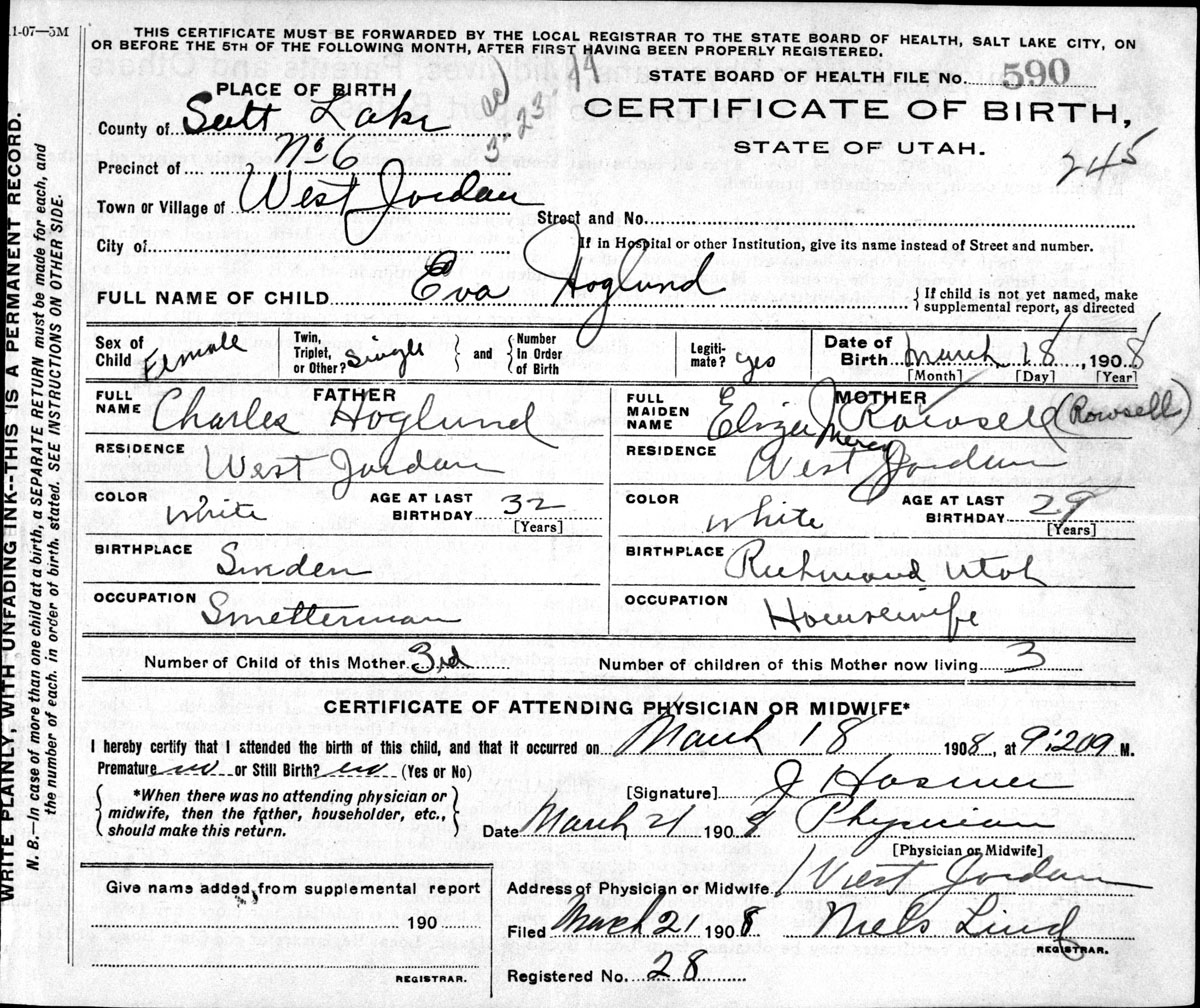 11-07—5M
THIS CERTIFICATE MUST BE FORWARDED BY THE LOCAL REGISTRAR TO THE STATE BOARD OF HEALTH, SALT LAKE CITY, ON
OR BEFORE THE 5TH OF THE FOLLOWING MONTH, AFTER FIRST HAVING BEEN PROPERLY REGISTERED.
STATE BOARD OF HEALTH FILE No. 590
PLACE OF BIRTH
3-23-44
CERTIFICATE OF BIRTH,
County of Salt Lake
STATE OF UTAH.
245
Precinct of No 6
Town or Village of West Jordan
Street and No.
City of
If in Hospital or other Institution, give its name instead of Street and number.
FULL NAME OF CHILD Eva Hoglund
{ If child is not yet named, make
supplemental report, as directed
Sex of Child Female
Twin, Triplet, or Other? Single } and { Number In Order of Birth
Legiti-mate? yes
Date of Birth March 18, 1908
[Month] [Day] [Year]
FATHER
FULL NAME Charles Hoglund
MOTHER
FULL MAIDEN NAME Eliza Mercy Rowsell (Rowsell)
RESIDENCE West Jordan
RESIDENCE West Jordan
COLOR White AGE AT LAST BIRTHDAY 32 [Years]
COLOR White AGE AT LAST BIRTHDAY 29 [Years]
BIRTHPLACE Sweden
BIRTHPLACE Richmond Utah
OCCUPATION Smelterman
OCCUPATION Housewife
Number of Child of this Mother 3rd
Number of children of this Mother now living 3
CERTIFICATE OF ATTENDING PHYSICIAN OR MIDWIFE*
I hereby certify that I attended the birth of this child, and that it occurred on March 18 1908, at 9:20 M.
Premature no or Still Birth? no (Yes or No)
{ *When there was no attending physician or
midwife, then the father, householder, etc.,
should make this return. }
[Signature] J Hosmer
Date March 21 1908 Physician
[Physician or Midwife]
Give name added from supplemental report
190
REGISTRAR.
Address of Physician or Midwife West Jordan
Filed March 21 1908 Niels Lind
REGISTRAR.
Registered No. 28
WRITE PLAINLY, WITH UNFADING INK--THIS IS A PERMANENT RECORD.
N. B.—In case of more than one child at a birth, a SEPARATE RETURN must be made for each, and
the number of each, in order of birth, stated. SEE INSTRUCTIONS ON OTHER SIDE.